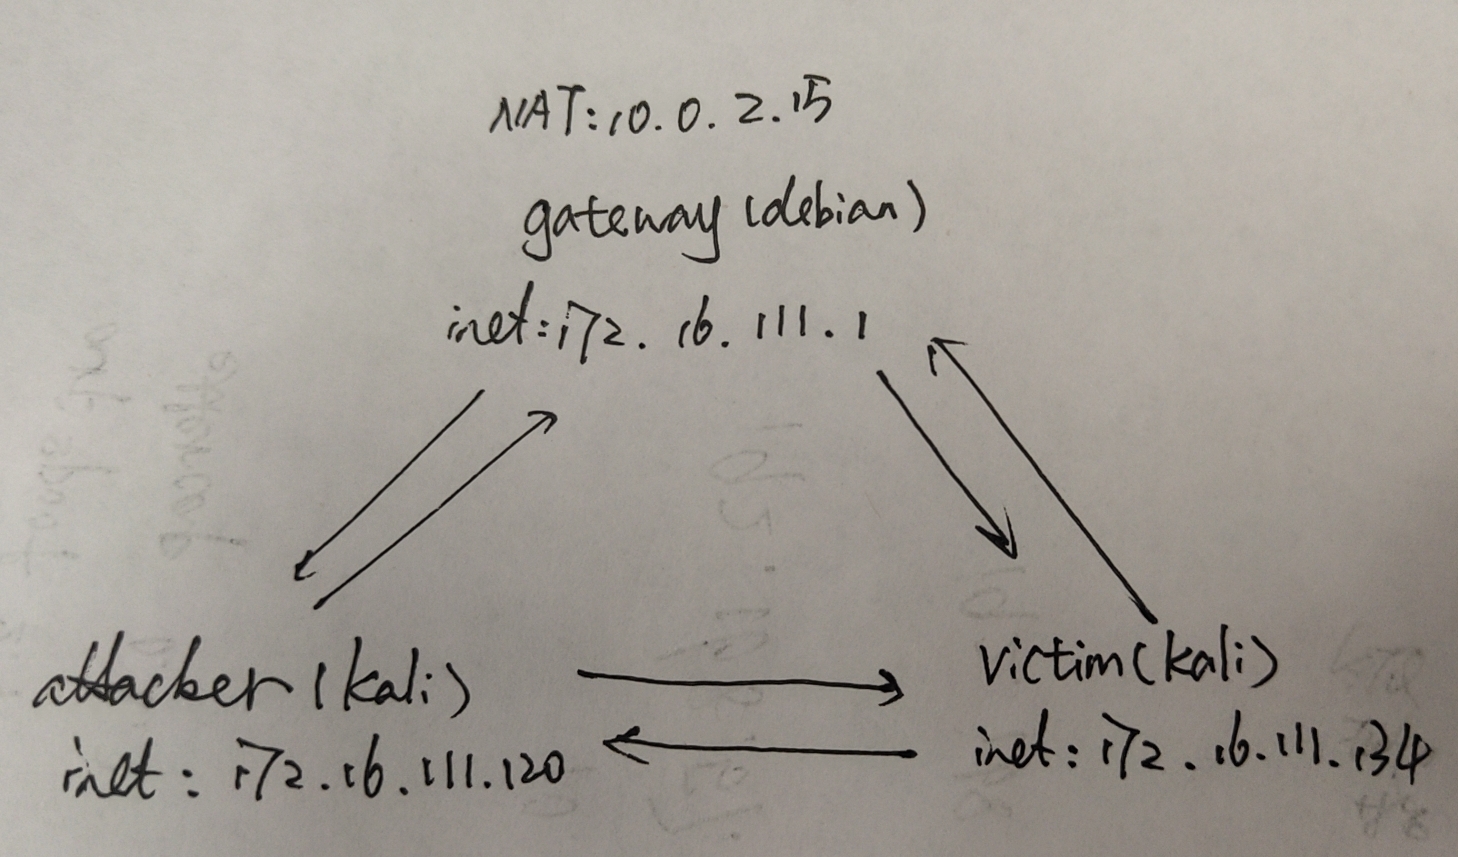 NAT:10.0.2.15
gateway (debian)
inet:172.16.111.1
attacker (kali)
inet: 172.16.111.120
victim(kali)
inet: 172.16.111.134